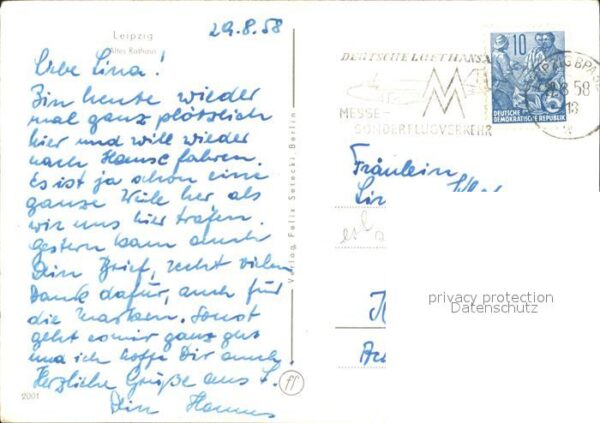 Leipzig
Altes Rathaus
29.8.58
Liebe Lina!
Bin heute wieder
mal ganz plötzlich
hier und will wieder
nach Hause fahren.
Es ist ja schon eine
ganze Weile her als
wir uns hier trafen.
Gestern kam auch
Dein Brief, recht vielen
Dank dafür, auch für
die Marken. Sonst
geht es mir ganz gut
und ich hoffe Dir auch.
Herzliche Grüße aus L.
Dein Hannes
2001
Verlag Felix Setecki, Berlin
ff
DEUTSCHE LUFTHANSA
MM
MESSE-
SONDERFLUGVERKEHR
10
DEUTSCHE
DEMOKRATISCHE REPUBLIK
LEIPZIG BPA
8.58
18
Fräulein
privacy protection
Datenschutz